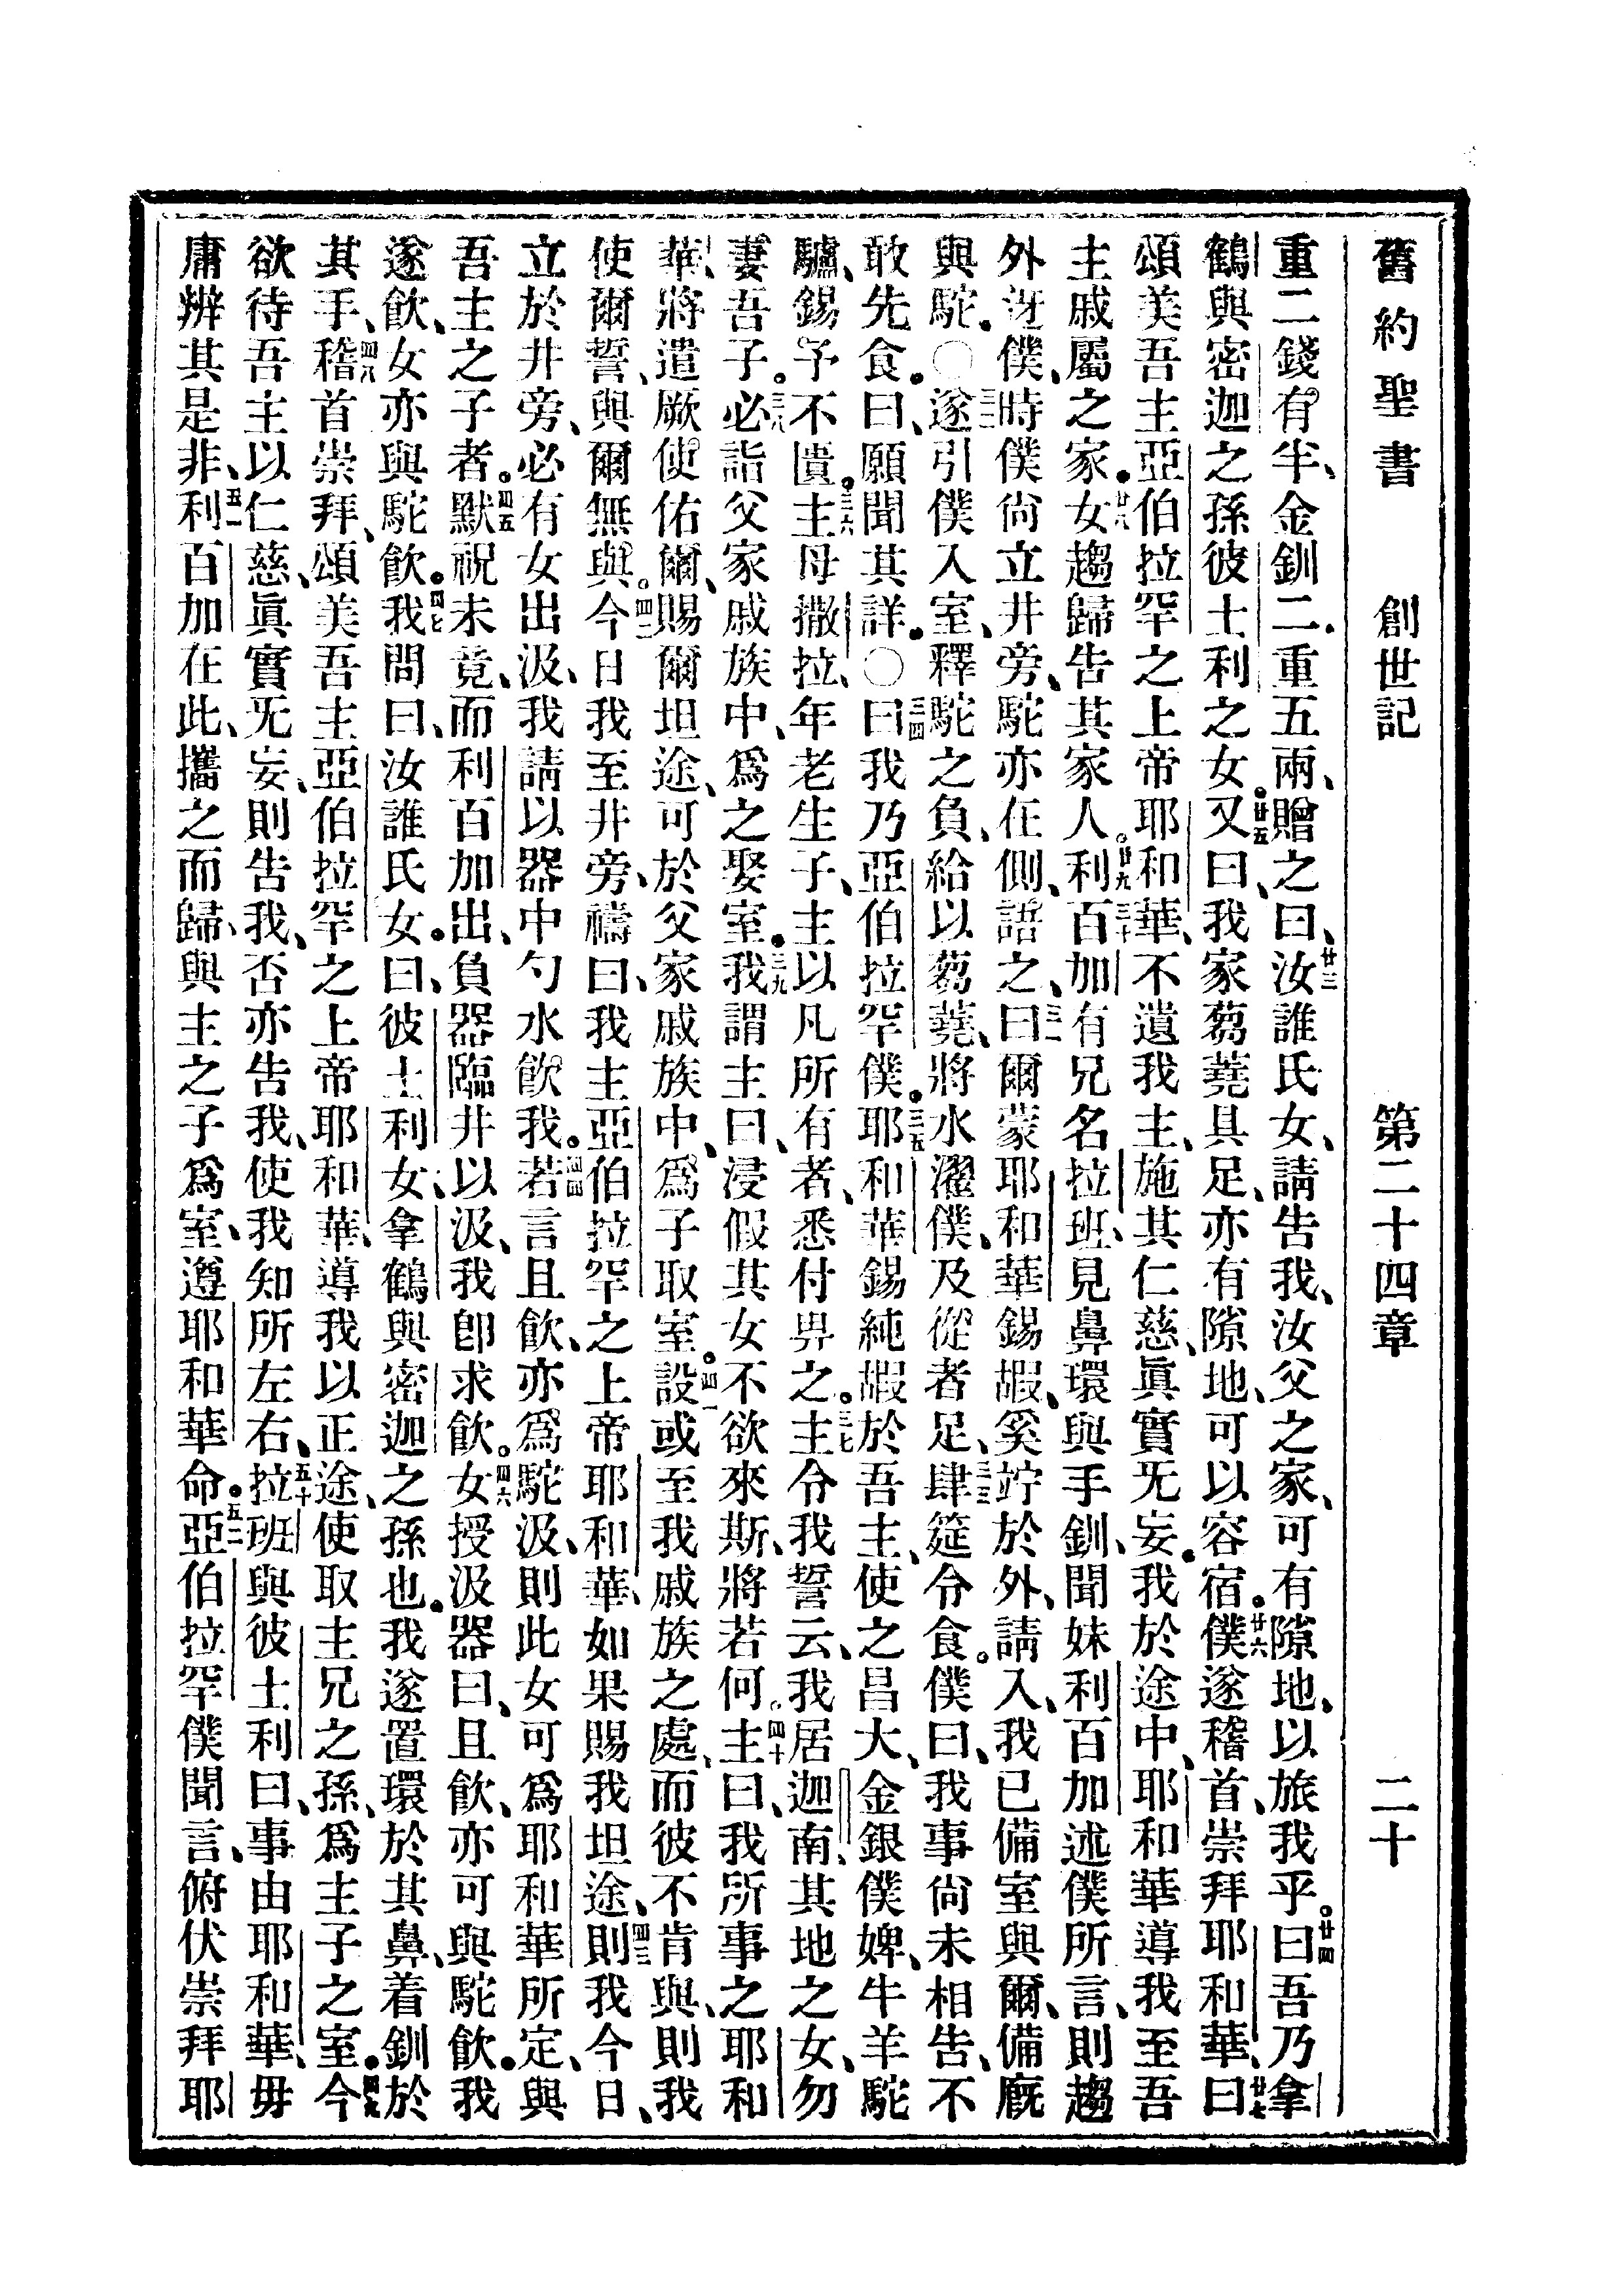 舊約聖書　創世記　第二十四章　二十
重二錢有半、金釧二、重五兩、贈之曰、廿三汝誰氏女、請告我、汝父之家、可有隙地、以旅我乎。廿四曰吾乃拿
鶴與密迦之孫彼土利之女。廿五又曰、我家芻蕘具足、亦有隙地、可以容宿。廿六僕遂稽首、崇拜耶和華、廿七曰
頌美吾主亞伯拉罕之上帝耶和華、不遺我主、施其仁慈、眞實旡妄。我於途中、耶和華導我至吾
主戚屬之家。廿八女趨歸告其家人。廿九利百加有兄名拉班、三十見鼻環與手釧、聞妹利百加述僕所言、則趨
外迓僕、時僕尙立井旁、駝亦在側、語之、三一曰爾蒙耶和華錫嘏、奚竚於外、請入、我已備室與爾、備廐
與駝。〇三二遂引僕入室、釋駝之負、給以芻蕘、將水濯僕、及從者足、三三肆筵令食。僕曰、我事尙未相告、不
敢先食。曰、願聞其詳。〇三四曰我乃亞伯拉罕僕。三五耶和華錫純嘏於吾主、使之昌大、金銀僕婢、牛羊駝
驢、錫予不匱。三六主母撒拉、年老生子、主以凡所有者、悉付畀之。三七主令我誓云、我居迦南、其地之女、勿
妻吾子。三八必詣父家戚族中、爲之娶室。三九我謂主曰、浸假其女不欲來斯、將若何。四十主曰、我所事之耶和
華、將遣厥使佑爾、賜爾坦途、可於父家戚族中、爲子取室。四一設或至我戚族之處、而彼不肯與、則我
使爾誓、與爾無與。四二今日我至井旁、禱曰、我主亞伯拉罕之上帝耶和華、如果賜我坦途、四三則我今日、
立於井旁、必有女出汲、我請以器中勺水飮我。四四若言且飮、亦爲駝汲、則此女可爲耶和華所定、與
吾主之子者。四五默祝未竟、而利百加出、負器臨井以汲、我卽求飮。四六女授汲器曰、且飮、亦可與駝飮。我
遂飮、女亦與駝飮。四七我問曰、汝誰氏女。曰、彼土利女、拿鶴與密迦之孫也。我遂置環於其鼻、着釧於
其手、四八稽首崇拜、頌美吾主亞伯拉罕之上帝耶和華、導我以正途、使取主兄之孫、爲主子之室。四九今
欲待吾主以仁慈、眞實旡妄、則告我、否亦告我、使我知所左右、五十拉班與彼土利曰、事由耶和華、毋
庸辨其是非、五一利百加在此、攜之而歸、與主之子爲室、遵耶和華命。五二亞伯拉罕僕聞言、俯伏崇拜耶